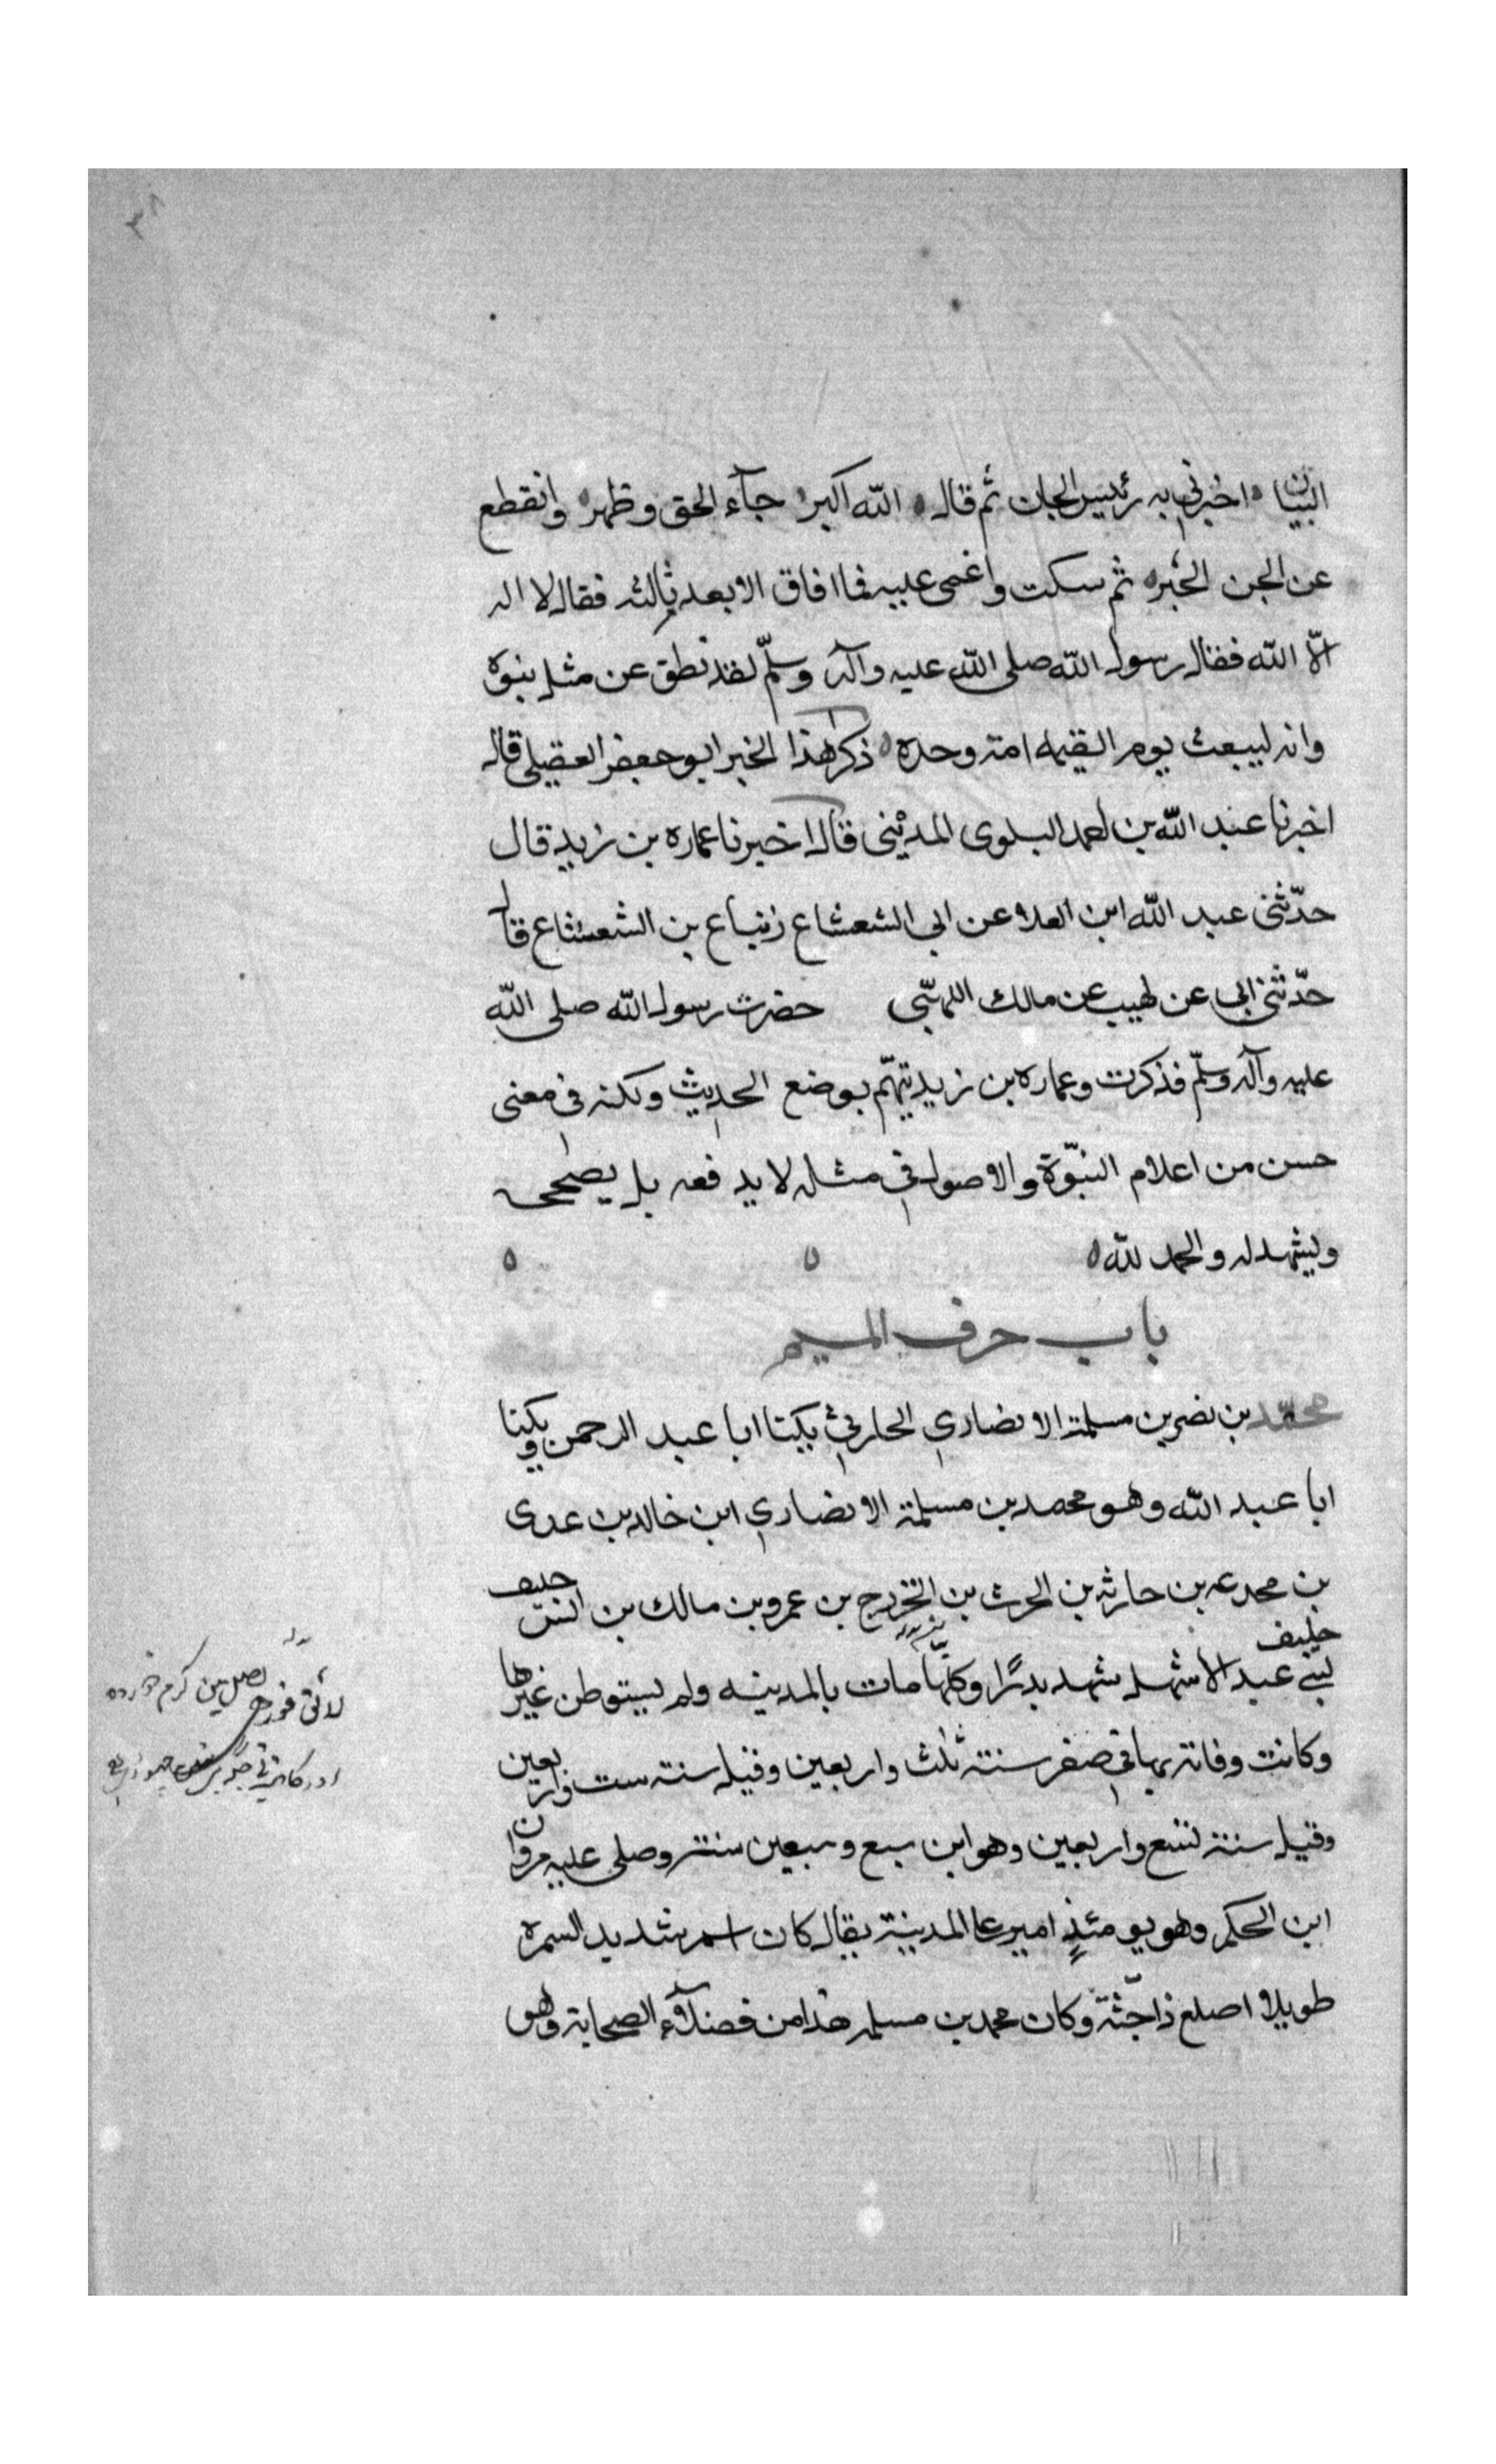 البيان اخبرني به رئيس الجان ثم قال الله اكبر جآء الحق وظهر وانقطع
عن الجن الخبر ثم سكت واغمى عليه فما افاق الا بعد ثالثه فقال لا اله
الّا الله فقال رسول الله صلى الله عليه وآله وسلّم لقد نطق عن مثل نبوة
وانه ليبعث يوم القيمه امة وحده ذكر هذا الخبر ابو جعفر العقيلي قال
اخبرنا عبد الله بن احمد البلوى المديني قال اخبرنا عماره بن زيد قال
حدّثنى عبد الله ابن العلا عن ابي الشعشاع زنباع بن الشعشاع قال
حدّثنى ابي عن لهيب عن مالك اللهبّى حضرت رسول الله صلى الله
عليه وآله وسلّم فذكرت وعماره بن زيد يتهّم بوضع الحديث ولكنه فى معنى
حسن من اعلام النبّوة والاصول في مثله لا يدفعه بل يصححه
ويشهد له والحمد لله
باب حرف الميم
محمّد بن نصر بن مسلمة الانصاري الحارثي يكنا ابا عبد الرحمن ويكنا
ابا عبد الله وهو محمد بن مسلمة الانصاري ابن خالد بن عدى
بن مجدعه بن حارثه بن الحرث بن الخزرج بن عمرو بن مالك بن حليف
حليف
لبني عبد الأشهل شهد بدرًا وكلّها مات بالمدينه ولم يستوطن غيرها
وكانت وفاته بها في صفر سنة ثلث واربعين وقيل سنة ست واربعين
وقيل سنة تسع واربعين وهو ابن سبع وسبعين سنة وصلى عليه مروان
ابن الحكم وهو يومئذٍ امير على المدينة يقال كان اسمر شديد السمره
طويلا اصلع ذا جثّة وكان محمد بن مسلمه هذا من فضلآء الصحابة وهو